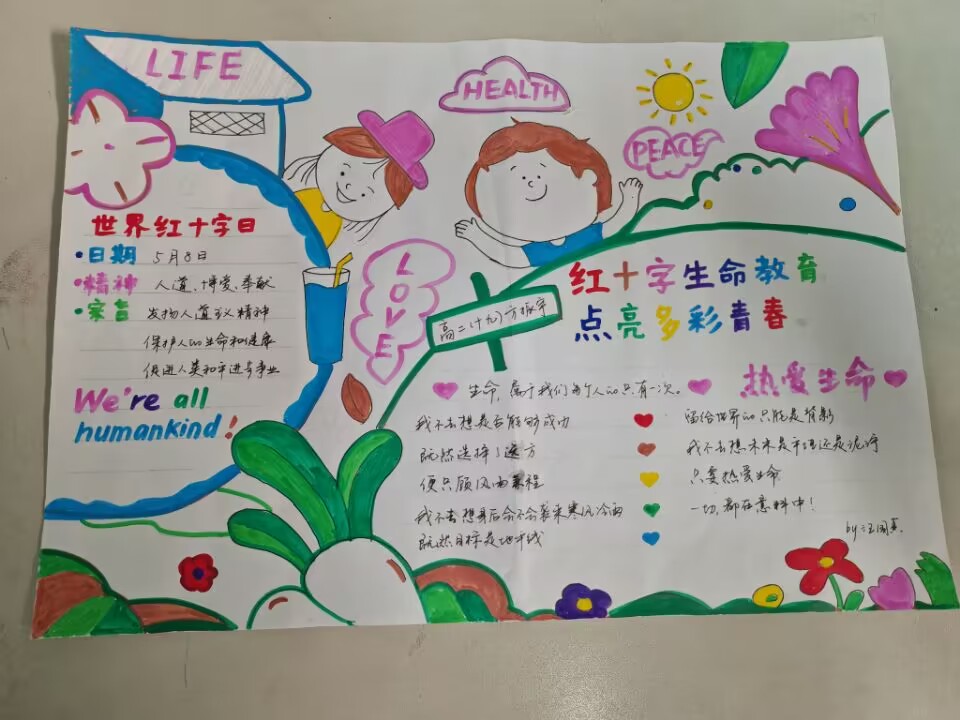 LIFE
HEALTH
PEACE
世界红十字日
•日期 5月8日
•精神 人道、博爱、奉献
•宗旨 发扬人道主义精神
保护人的生命和健康
促进人类和平进步事业
We're all
humankind!
LOVE
高二(十九)方振宇
红十字生命教育
点亮多彩青春
热爱生命
生命,属于我们每个人的只有一次。
我不去想是否能够成功
既然选择了远方
便只顾风雨兼程
我不去想身后会不会袭来寒风冷雨
既然目标是地平线
留给世界的只能是背影
我不去想未来是平坦还是泥泞
只要热爱生命
一切,都在意料中!
by:汪国真.